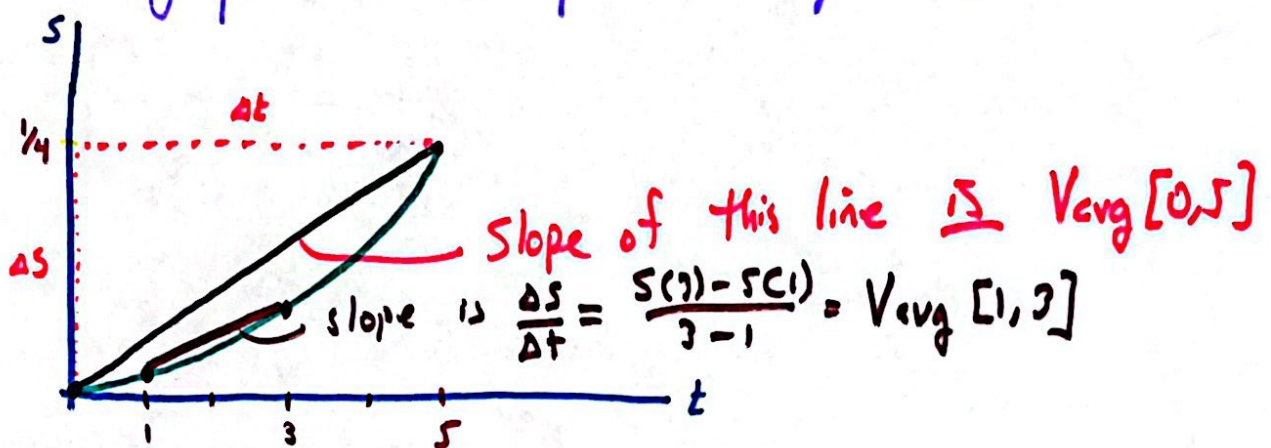 S
Δt
1/4
slope of this line is Vavg [0,5]
ΔS
slope is ΔS/Δt = S(3)-S(1)/3-1 = Vavg [1,3]
t
1 3 5